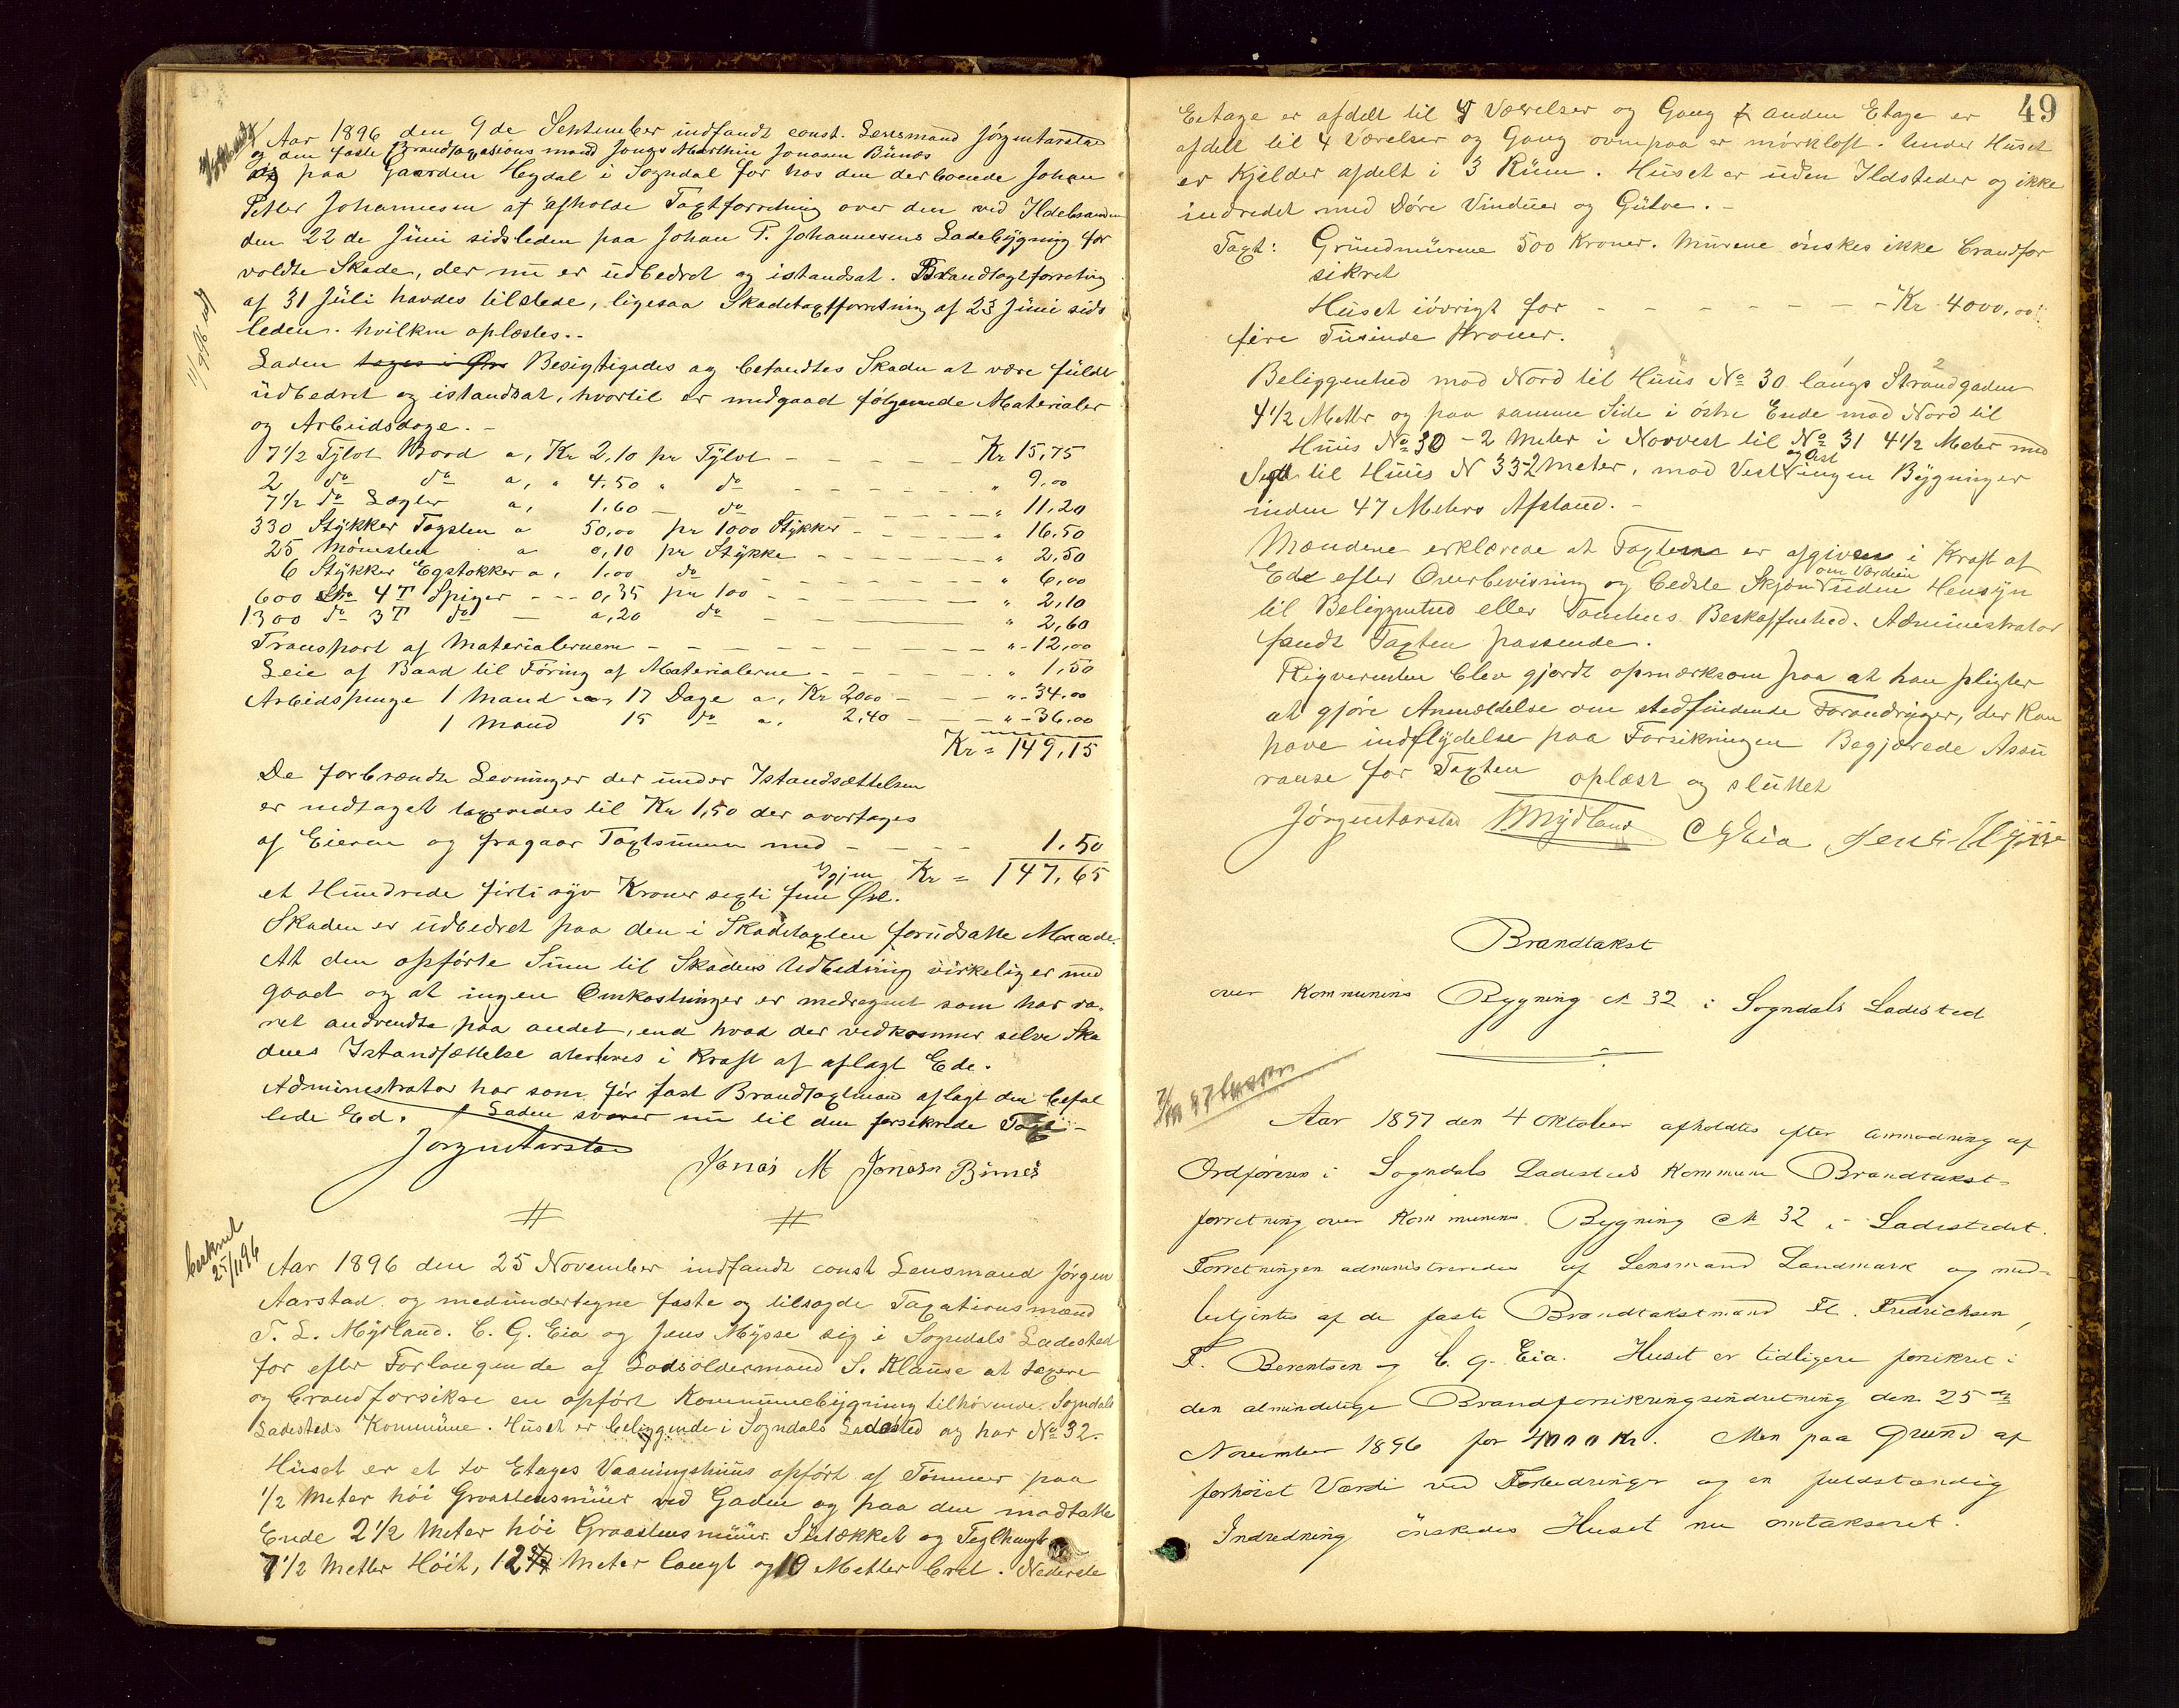 Aar 1896 den 9de September indfandt const. Lensmand Jörgen Aarstad
og den faste Brandtaxasions mand Jonas Marthin Jonasen Bünes
sig paa Gaarden Hegdal i Sogndal for hos den der boende Johan
Petter Johannesen at afholde Taxtforretning over den ved Ildebranden
den 22de Jüni sidsleden paa Johan P. Johannesens Ladebÿgning for
voldte Skade, der nü er üdbedret og istandsat. Brandtaxtforretning
af 31 Jüli havdes tilstede, ligesaa Skadetaxtforretning af 23 Jüni sids
leden. hvilken oplæstes..
Laden tages i Øie Besigtigedes og befandtes Skaden at være füldt
üdbedret og istandsat, hvortil er medgaaet fölgende Materialer
og Arbeidsdage. -
7 1/2 Tÿlvt Bord a, Kr 2,10 pr Tÿlvt - - - - - Kr 15,75
2 do do a, " 4.50 " do - - - - - " 9.00
7 1/2 do Lægter a, 1.60 - do - - - - - " 11.20
330 Stÿkker Tagsten a 50,00 pr 1000 Stÿkker - - - - " 16.50
25 Mönesten a 0,10 pr Stÿkke - - - - - " 2.50
6 Stÿkker Egstokker a, 1.00 do - - - - - " 6,00
600 do 4T Spiger - - - 0,35 pr 100 - - - - - " 2,10
1300 do 3T do - a,20 do - - - - - " 2,60
Transport af Materialernem - - - - - - - - " - 12,00
Leie af Baad til Föring af Materialerne - - - - - " 1,50
Arbeidspenge 1 Mand i 17 Dage a, Kr 2,00 - - - " - 34.00
1 Mand 15 do a, 2,40 - - - " - 36.00
Kr = 149,15
De forbrændte Levninger der ünder Istandsættelsen
er nedtaget taxeredes til Kr 1,50 der overtages
af Eieren og fragaar Taxtsümmen med - - - - 1.50
Igjen Kr = 147,65
et Hündrede firti sÿv Kroner sexti fem Øre.
Skaden er üdbedret paa den i Skadetaxten forüdsatte Maade.
At den opförte Süm til Skadens Udbedring virkelig er med
gaaet og at ingen Omkostninger er medregnet som har væ,
ret anvendte paa andet, end hvad der vedkommer selve Ska
dens Istandsættelse atesteres i Kraft af aflagt Ede.
Administrator har som för fast Brandtaxtmand aflagt den befal
lede Ed. Laden svarer nü til den forsikrede Taxt -
Jörgen Aarstad
Jonas M Jonasen Bünes
# #
Aar 1896 den 25 November indfandt const Lensmand Jörgen
Aarstad og medündertegne faste og tilsagde Taxationsmænd
T. L. Mÿdland. C. G. Eia og Jens Mÿsse sig i Sogndals Ladested
for efter Forlangende af Ladsoldermand S. Klaüse at taxere
og brandforsikre en opfört Kommünebÿgning tilhörende Sogndals
Ladesteds Kommüne. Hüset er beliggende i Sogndals Ladested og har No 32.
Hüset er et to Etages Vaaningshüüs opfört af Tömmer paa
1/2 Meter höi Graastensmüür ved Gaden og paa den modsatte
Ende 2 1/2 Meter höi Graastensmüür. og Teglhengt
7 1/2 Metter Höit, 12 Meter langt og 10 Metter bret. Nederste
beskrevet
25/11 96
49
Eetage er afdelt til 4 Værelser og Gang & anden Etage er
afdelt til 4 Værelser og Gang ovenpaa er mörkloft. Under Hüset
er Kjelder afdelt i 3 Rüm. Hüset er üden Ildsteder og ikke
indredet med Döre Vindüer og Gülve. -
Taxt: Gründmürene 500 Kroner. Mürene önskes ikke brandfor
sikret
Hüset iövrigt for - - - - - - Kr 4000,00
fire Tüsinde Kroner.
Beliggenhed mod Nord til Hüüs No 30 langs Strandgaden
4 1/2 Metter og paa samme Side i östre Ende mod Nord til
Hüüs No 30 - 2 Meter i Norvest til No 31 4 1/2 Meter mod
Syd til Hüüs N 33-2 Meter, mod Vest og Øst ingen Bÿgninger
inden 47 Meters Afstand. -
Mændene erklærede at Taxten er afgiven i Kraft af
Ede efter Overbevisning og bedste Skjön om Værdien üden Hensÿn
til Beliggenhed eller Tomtens Beskaffenhed. Administrator
fandt Taxten passende.
Rigventen blev gjordt opmærksom paa at han pligter
at gjöre Anmældelse om stedfindende Forandringer, der kan
have indflÿdelse paa Forsikringen Begjærede Assü
ranse for Taxten oplæst og slüttet
Jörgen Aarstad TMÿdland C G Eia Jens Mÿsse
Brandtakst
over Kommunens Bygning No 32 i Sogndals Ladested
Aar 1897 den 4 Oktober afholdtes efter Anmodning af
Ordföreren i Sogndals Ladesteds Kommune Brandtakst-
forretning over Kommunens Bygning No 32 i Ladestedet.
Forretningen administreredes af Lensmand Landmark og med-
betjentes af de faste Brandtakstmænd Fl. Fredrichsen,
F. Berentsen og C. G. Eia. Huset er tidligere forsikret i
den almindelige Brandforsikringsindretning den 25de
November 1896 for 4000 Kr. Men paa Grund af
forhöiet Værdi ved Forbedringer og en fuldstændig
Indredning önskedes Huset nu omtakseret.